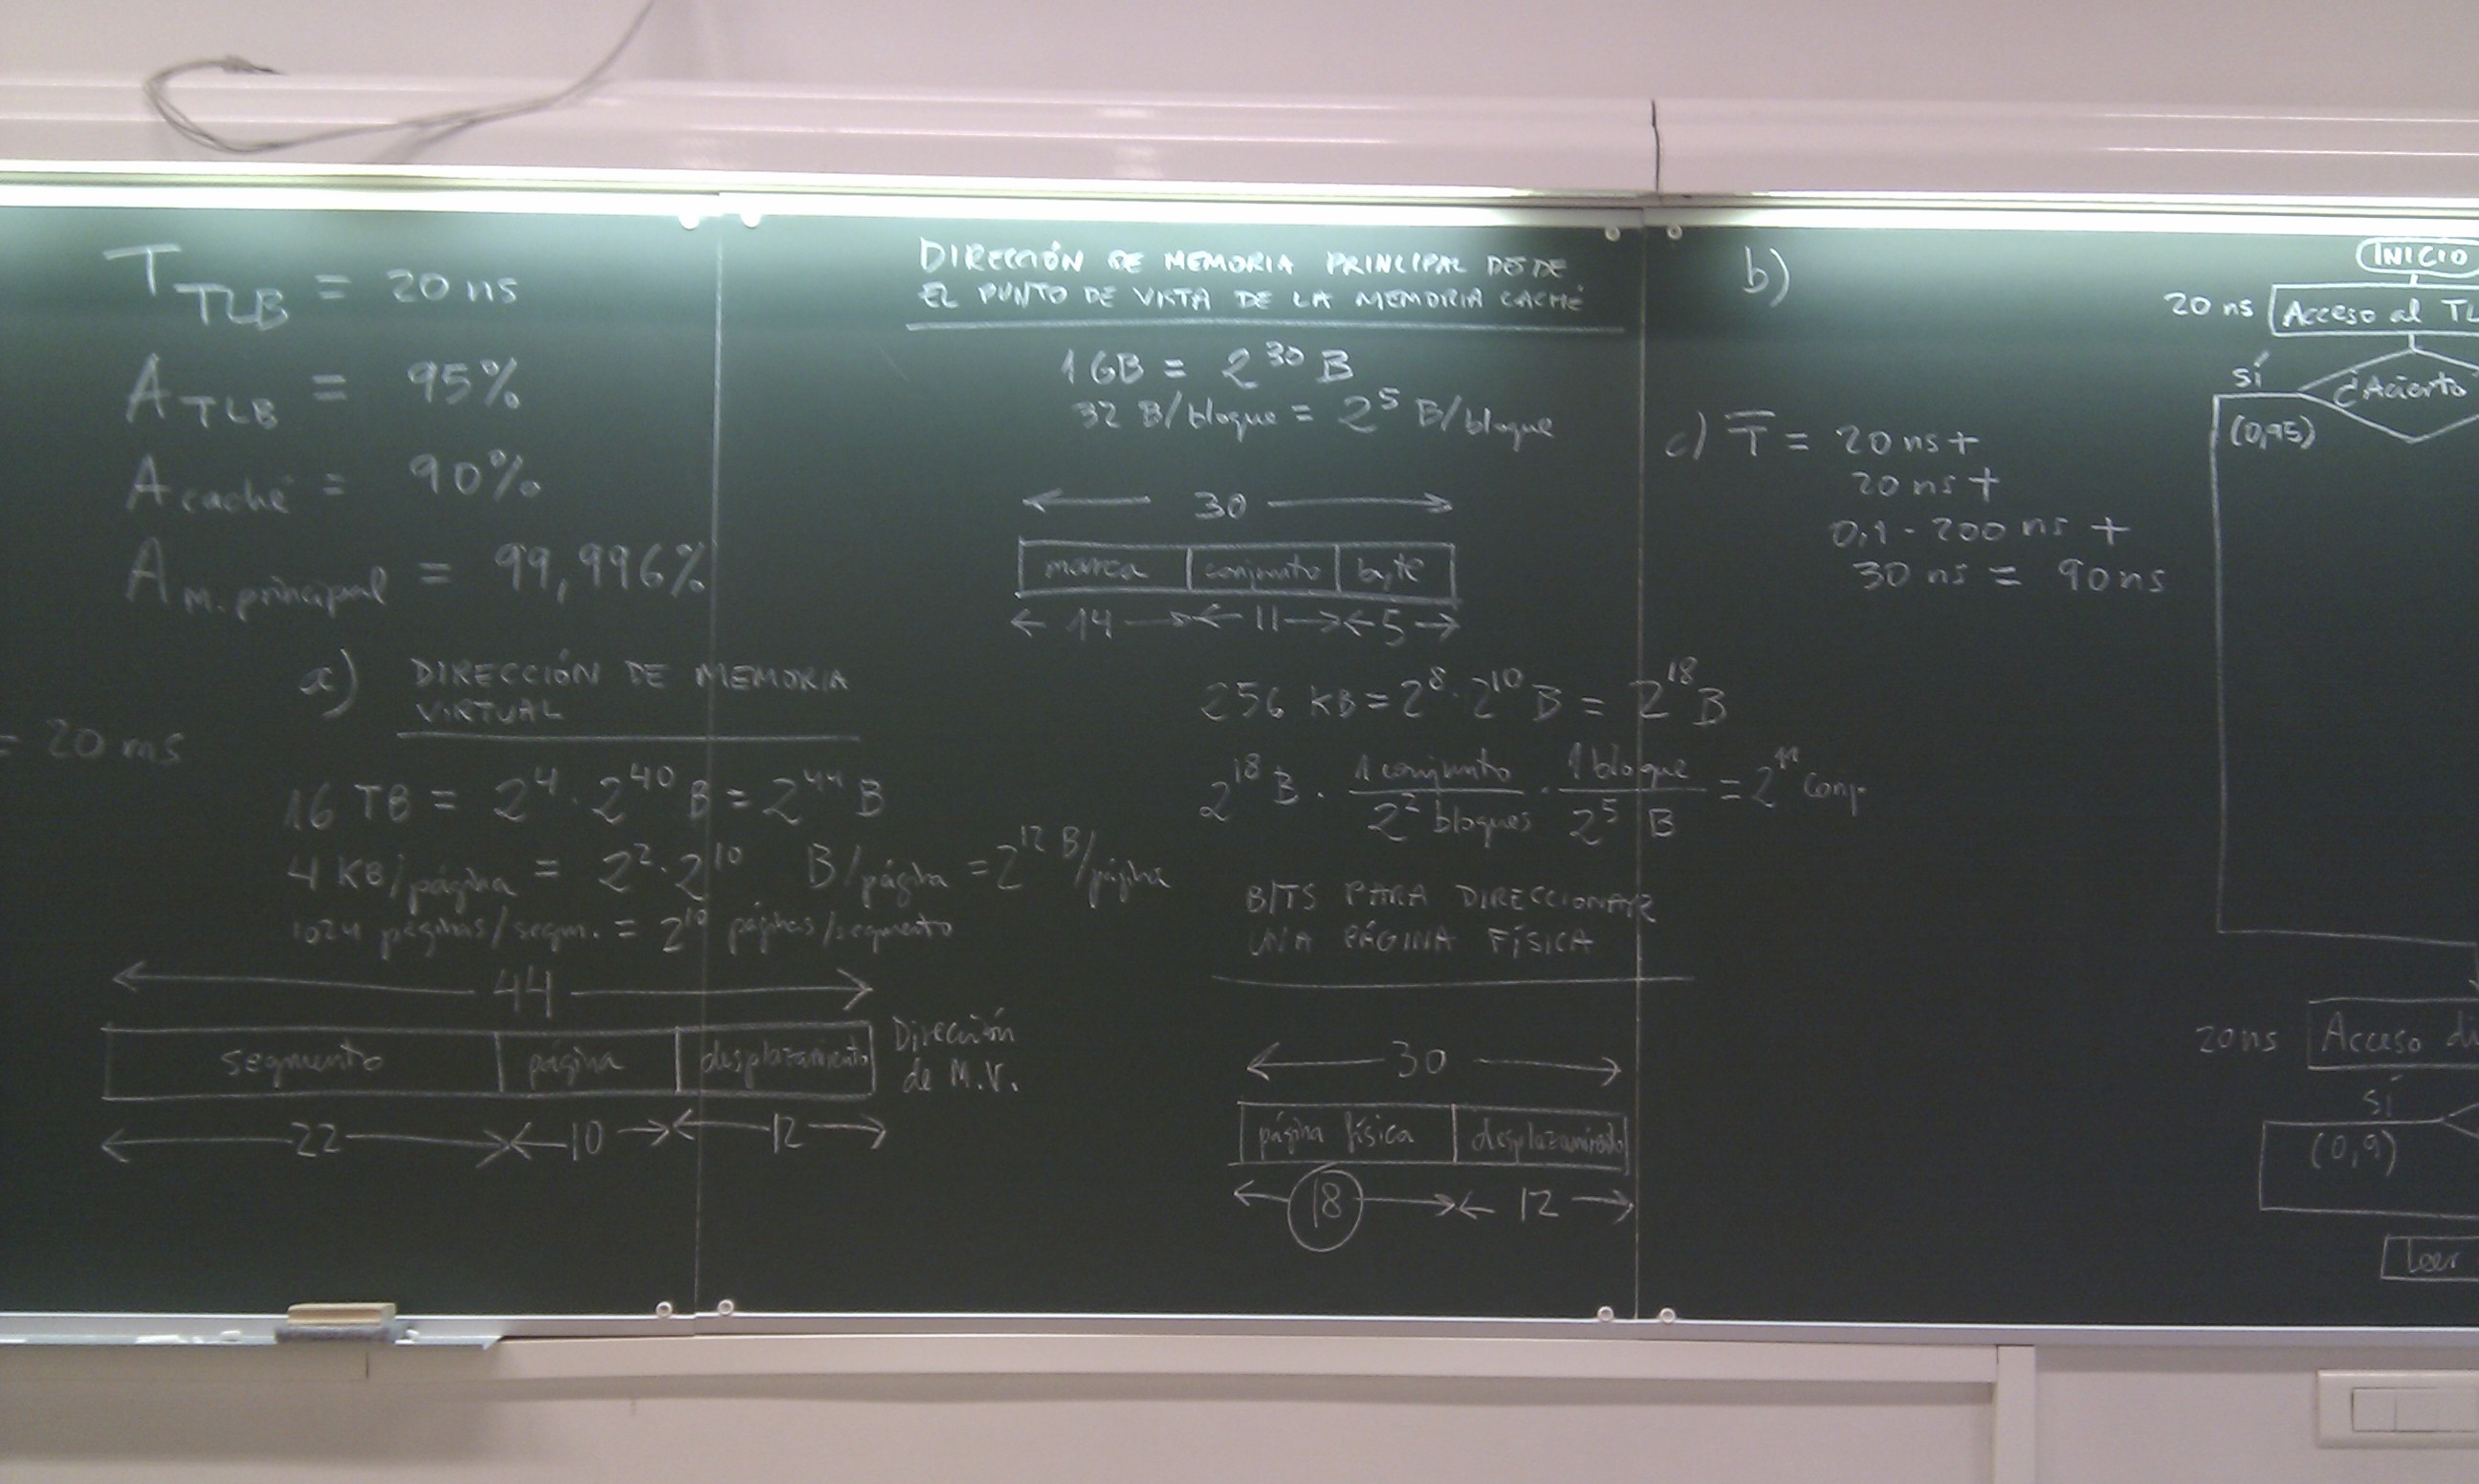 T TLB = 20 ns
A TLB = 95%
A caché = 90%
A M. principal = 99,996%
= 20 ms
a) DIRECCIÓN DE MEMORIA
VIRTUAL
16 TB = 2^4 · 2^40 B = 2^44 B
4 KB/página = 2^2 · 2^10 B/página = 2^12 B/página
1024 páginas/segm. = 2^10 páginas/segmento
44
segmento página desplazamiento
Dirección
de M.V.
22 10 12
DIRECCIÓN DE MEMORIA PRINCIPAL DESDE
EL PUNTO DE VISTA DE LA MEMORIA CACHÉ
1 GB = 2^30 B
32 B/bloque = 2^5 B/bloque
30
marca conjunto byte
14 11 5
256 KB = 2^8 · 2^10 B = 2^18 B
2^18 B · 1 conjunto / 2^2 bloques · 1 bloque / 2^5 B = 2^11 conj.
BITS PARA DIRECCIONAR
UNA PÁGINA FÍSICA
30
página física desplazamiento
18 12
b)
c) T = 20 ns +
20 ns +
0,1 · 200 ns +
30 ns = 90 ns
INICIO
20 ns Acceso al TL
sí
¿Acierto
(0,95)
20 ns Acceso di
sí
(0,9)
Leer